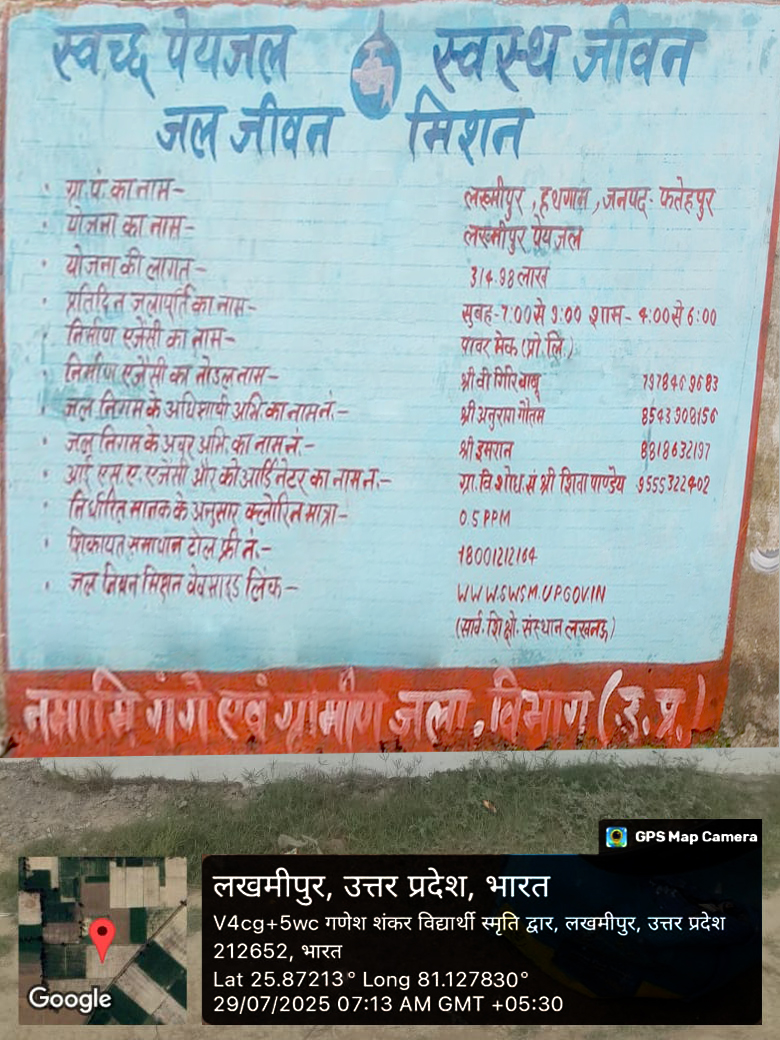 स्वच्छ पेयजल स्वस्थ जीवन
जल जीवन मिशन
• ग्रा.पं. का नाम- लखमीपुर, हथगाम, जनपद- फतेहपुर
• योजना का नाम- लखमीपुर पेयजल
• योजना की लागत- 314.98 लाख
• प्रतिदिन जलापूर्ति का नाम- सुबह-7:00 से 9:00 शाम- 4:00 से 6:00
• निर्माण एजेंसी का नाम- पावर मेक (प्रो.लि.)
• निर्माण एजेंसी का नोडल नाम- श्री वी गिरि बाबू 7978469683
• जल निगम के अधिशाषी अभि. का नाम नं.- श्री अनुराग गौतम 8543909156
• जल निगम के अवर अभि. का नाम नं.- श्री इमरान 8818632197
• आई एस.ए. एजेंसी और को आर्डिनेटर का नाम न.- ग्रा. वि शोध.सं श्री शिवा पाण्डेय 9555322402
• निर्धारित मानक के अनुसार क्लोरिन मात्रा- 0.5 PPM
• शिकायत समाधान टोल फ्री नं.- 18001212164
• जल मिशन वेबसाइड लिंक- WWW.SWSM.UP.GOV.IN
(सार्व. शि.क्षो. संस्थान लखनऊ)
नमामि गंगे एवं ग्रामीण जला. विभाग (उ.प्र.)
GPS Map Camera
लखमीपुर, उत्तर प्रदेश, भारत
V4cg+5wc गणेश शंकर विद्यार्थी स्मृति द्वार, लखमीपुर, उत्तर प्रदेश
212652, भारत
Lat 25.87213° Long 81.127830°
29/07/2025 07:13 AM GMT +05:30
Google